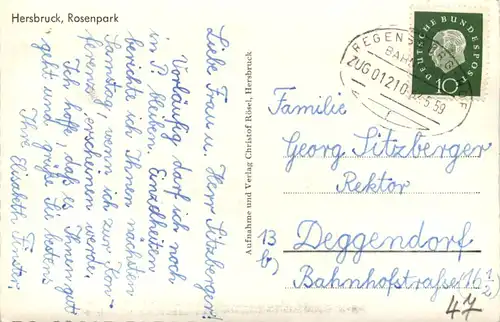 Hersbruck, Rosenpark
Liebe Frau u. Herr Sitzberger!
Vorläufig darf ich noch
in P. bleiben. Einzelheiten
berichte ich Ihnen nächsten
Samstag, wenn ich zur Kon-
ferenz erscheinen werde.
Ich hoffe, daß es Ihnen gut
geht und grüße Sie bestens
Ihre Elisabeth
Aufnahme und Verlag Christof Rösel, Hersbruck
REGENSBURG
BAHNPOST
ZUG 01210
5.59
DEUTSCHE BUNDESPOST
10
Familie
Georg Sitzberger
Rektor
13
b)
Deggendorf
Bahnhofstraße (16 1/2)
47